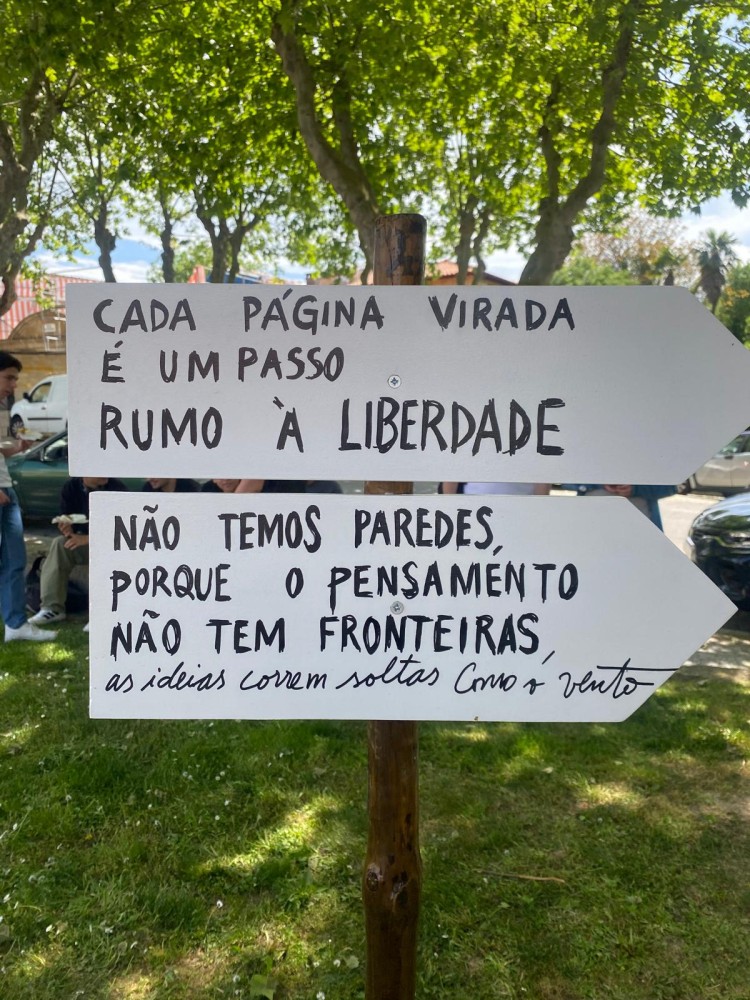 CADA PÁGINA VIRADA
É UM PASSO
RUMO À LIBERDADE
NÃO TEMOS PAREDES,
PORQUE O PENSAMENTO
NÃO TEM FRONTEIRAS,
as ideias correm soltas como o vento